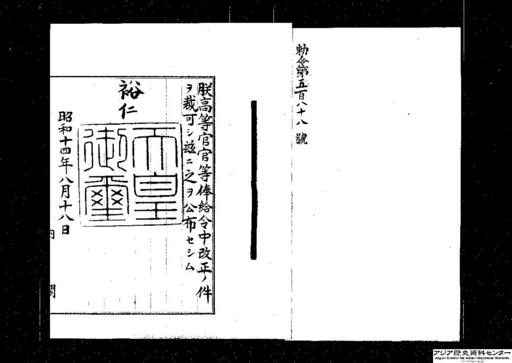 勅令第五百八十八號
朕高等官官等俸給令中改正ノ件
ヲ裁可シ茲ニ之ヲ公布セシム
裕仁
天皇御璽
昭和十四年八月十八日
内閣
アジア歴史資料センター
Japan Center for Asian Historical Records